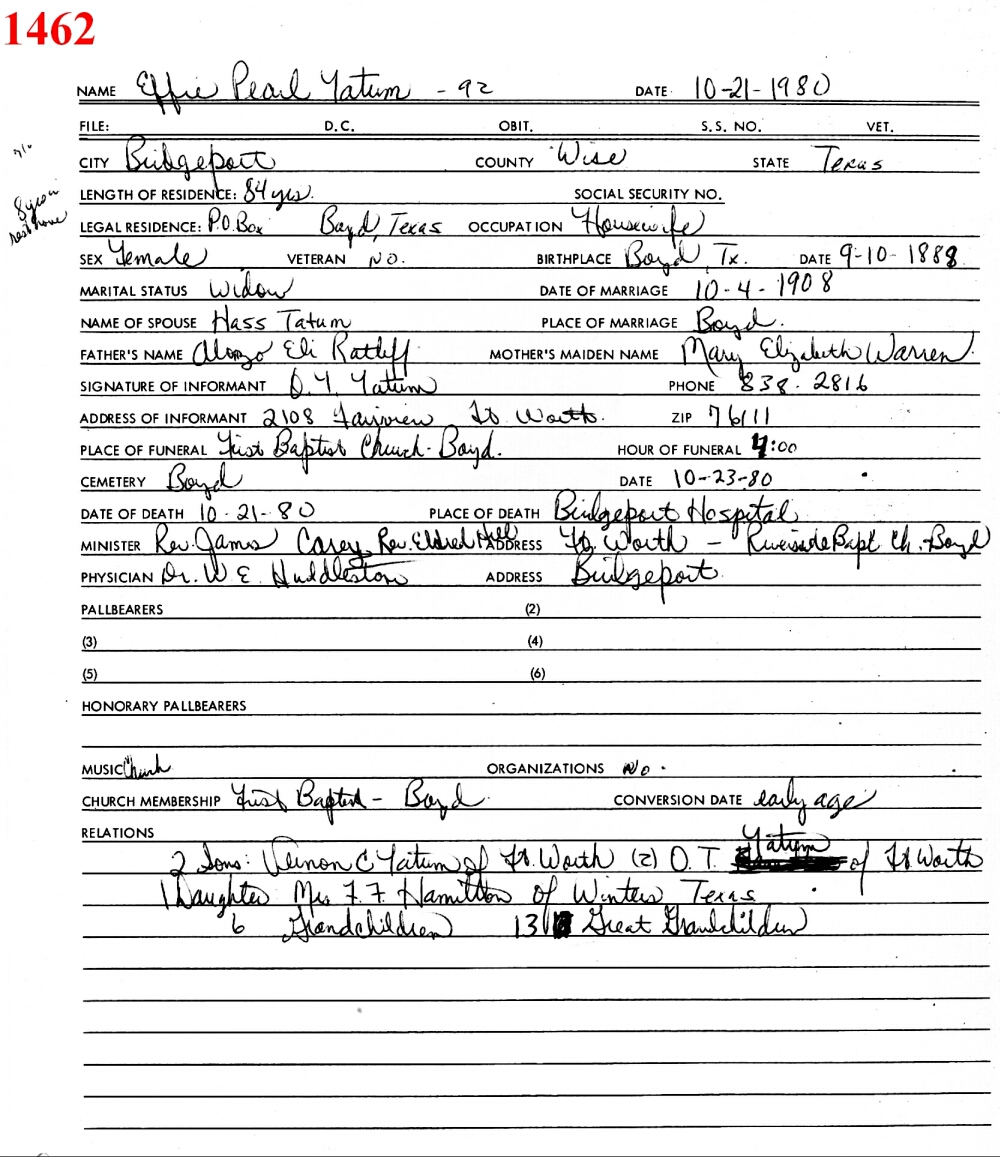 1462
NAME Effie Pearl Tatum - 92 DATE 10-21-1980
FILE: D.C. OBIT. S.S. NO. VET.
CITY Bridgeport COUNTY Wise STATE Texas
LENGTH OF RESIDENCE: 84 yrs. SOCIAL SECURITY NO.
8 yrs in rest home
LEGAL RESIDENCE: P.O. Box Boyd, Texas OCCUPATION Housewife
SEX Female VETERAN NO. BIRTHPLACE Boyd, Tx. DATE 9-10-1888
MARITAL STATUS Widow DATE OF MARRIAGE 10-4-1908
NAME OF SPOUSE Hass Tatum PLACE OF MARRIAGE Boyd.
FATHER'S NAME Alonzo Eli Ratliff MOTHER'S MAIDEN NAME Mary Elizabeth Warren
SIGNATURE OF INFORMANT O.T. Tatum PHONE 838-2816
ADDRESS OF INFORMANT 2108 Fairview Ft. Worth. ZIP 76111
PLACE OF FUNERAL First Baptist Church-Boyd. HOUR OF FUNERAL 4:00
CEMETERY Boyd DATE 10-23-80
DATE OF DEATH 10-21-80 PLACE OF DEATH Bridgeport Hospital
MINISTER Rev. James Carey, Rev. Eldred Hill ADDRESS Ft. Worth - Riverside Bapt. Ch. - Boyd
PHYSICIAN Dr. W E. Huddleston ADDRESS Bridgeport
PALLBEARERS (2)
(3) (4)
(5) (6)
HONORARY PALLBEARERS
MUSIC Church ORGANIZATIONS No.
CHURCH MEMBERSHIP First Baptist - Boyd CONVERSION DATE early age
RELATIONS
2 Sons: Vernon C Tatum of Ft. Worth (2) O.T. Tatum of Ft Worth
1 Daughter Mrs F.F. Hamilton of Winters Texas
6 Grandchildren 13 Great Grandchildren